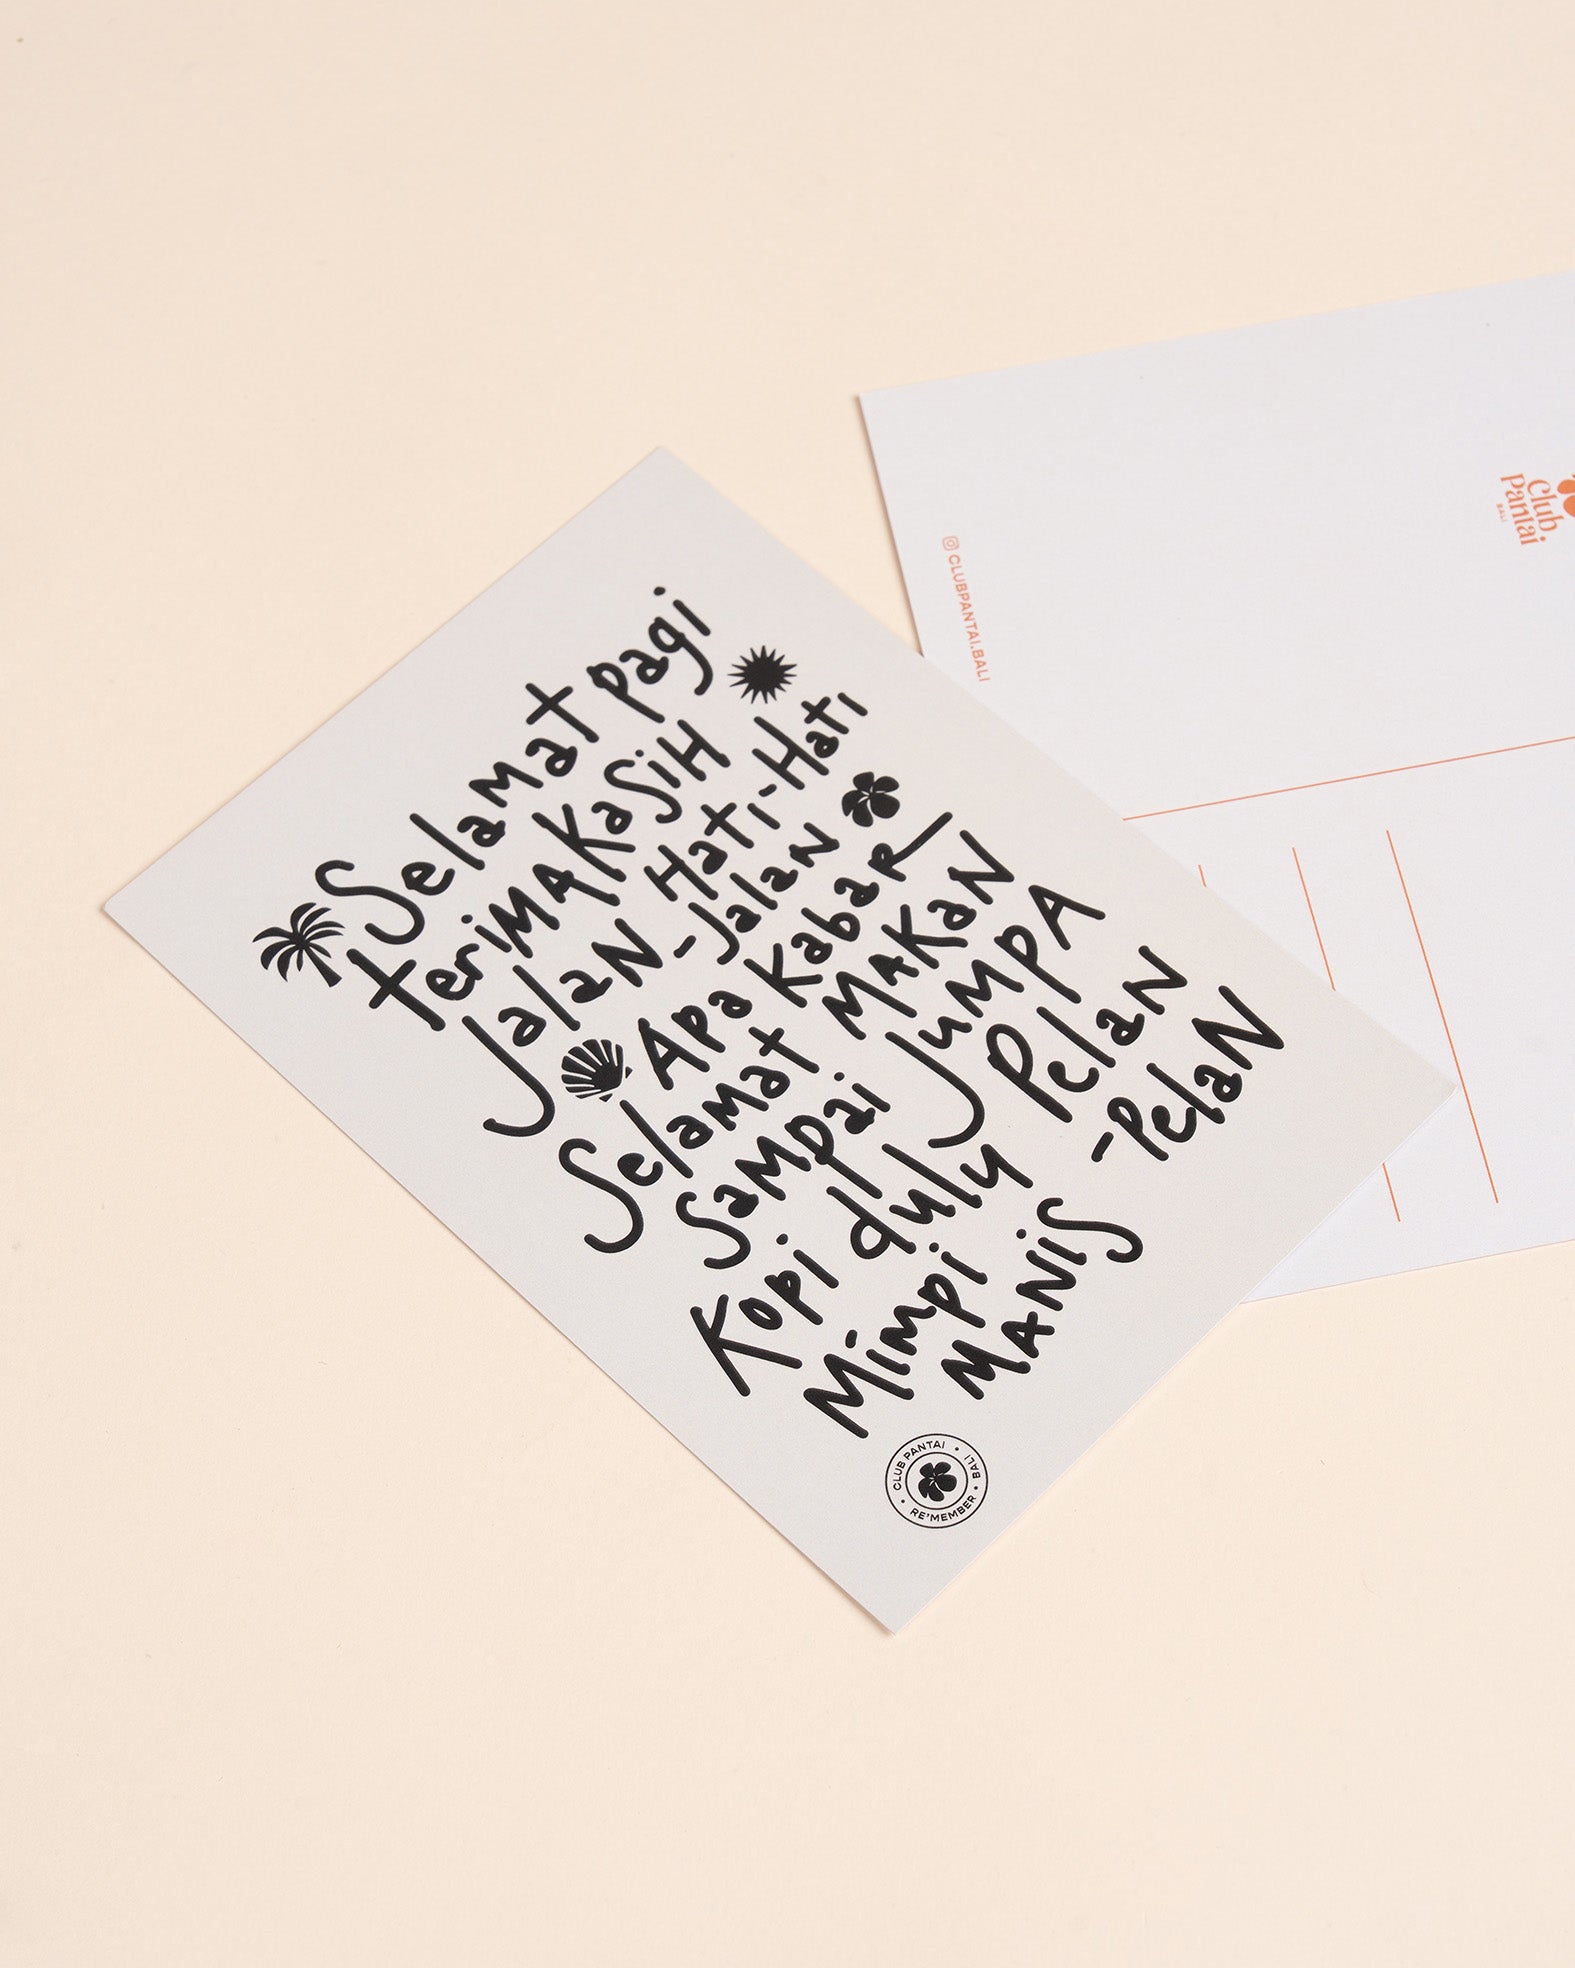 Selamat pagi
teriMAKaSiH
JalaN Hati-Hati
-JalaN
Apa KabaR
Selamat MAKaN
Sampai JuMPA
Kopi duly Pelan
-PelaN
Mimpi MANiS
CLUB PANTAI • BALI • RE'MEMBER •
CLUBPANTAI.BALI
club
pantai
BALI